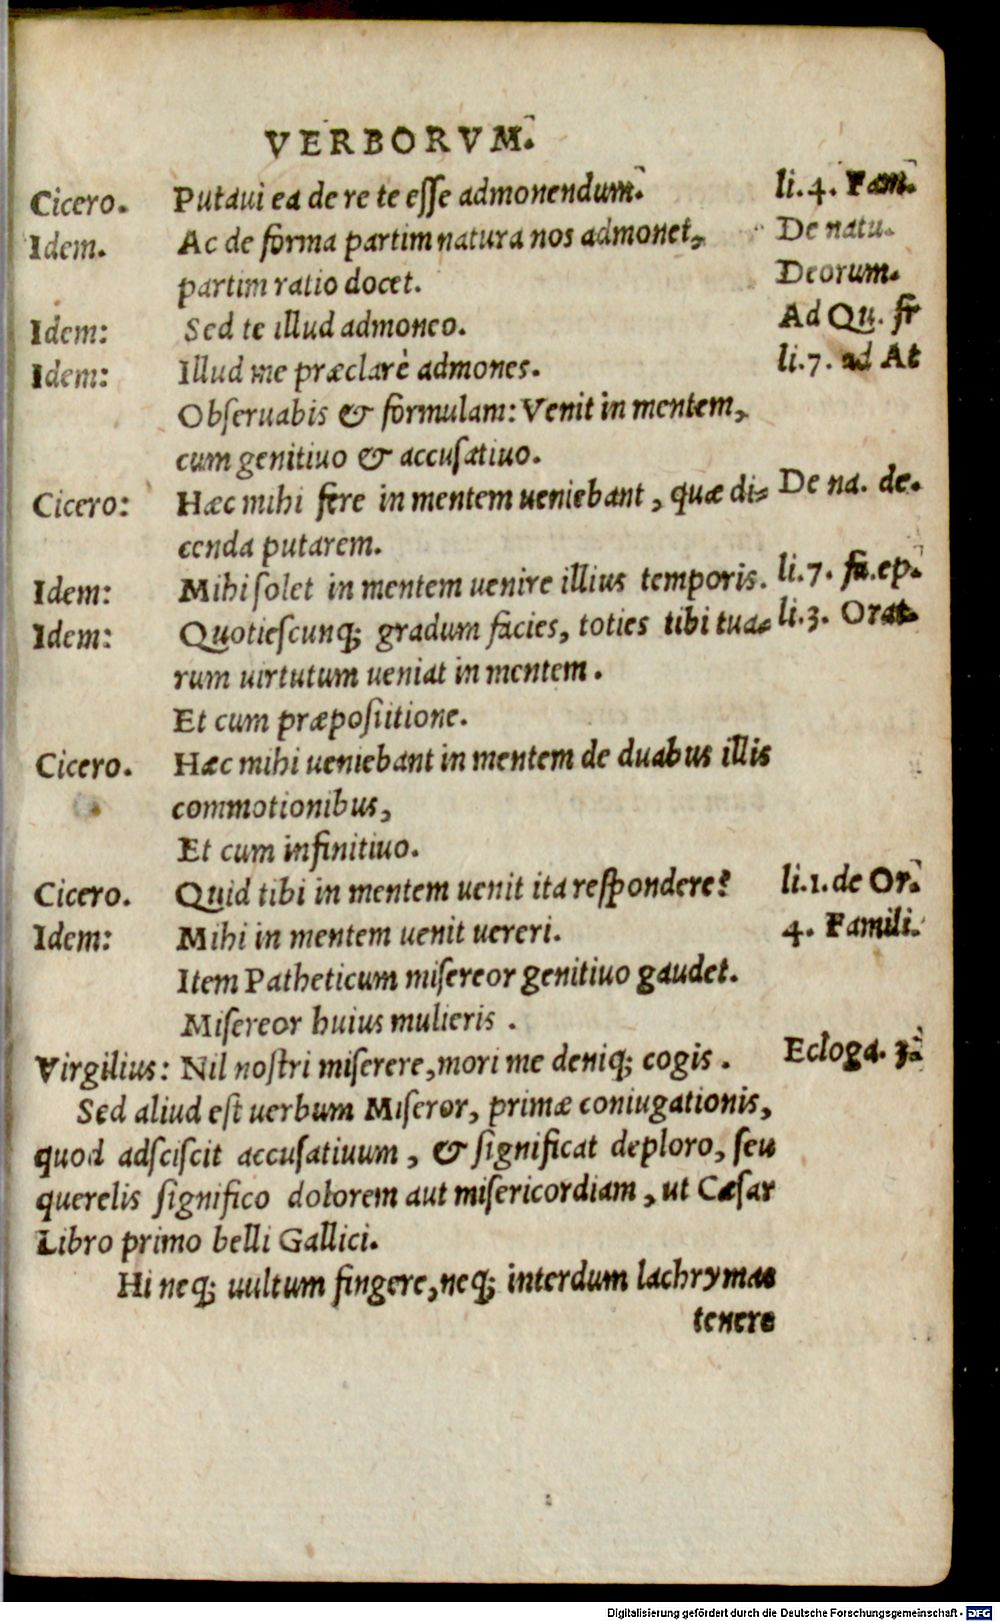 VERBORVM.
Cicero. Putaui ea de re te eſſe admonendum. li.4. Fam.
Idem. Ac de forma partim natura nos admonet, De natu.
partim ratio docet. Deorum.
Idem: Sed te illud admoneo. Ad Qu. fr
Idem: Illud me præclarè admones. li.7. ad At
Obſeruabis & formulam: Venit in mentem,
cum genitiuo & accuſatiuo.
Cicero: Hæc mihi fere in mentem ueniebant, quæ di= De na. de.
cenda putarem.
Idem: Mihi ſolet in mentem uenire illius temporis. li.7. fa.ep.
Idem: Quotieſcunq; gradum facies, toties tibi tua= li.3. Orat.
rum uirtutum ueniat in mentem.
Et cum præpoſiitione.
Cicero. Hæc mihi ueniebant in mentem de duabus illis
commotionibus,
Et cum infinitiuo.
Cicero. Quid tibi in mentem uenit ita reſpondere? li.1.de Or.
Idem: Mihi in mentem uenit uereri. 4. Famili.
Item Patheticum miſereor genitiuo gaudet.
Miſereor huius mulieris.
Virgilius: Nil noſtri miſerere, mori me deniq; cogis. Ecloga. 3.
Sed aliud eſt uerbum Miſeror, primæ coniugationis,
quod adſciſcit accuſatiuum, & ſignificat deploro, ſeu
querelis ſignifico dolorem aut miſericordiam, ut Cæſar
Libro primo belli Gallici.
Hi neq; uultum fingere, neq; interdum lachrymas
tenere
Digitalisierung gefördert durch die Deutsche Forschungsgemeinschaft - DFG